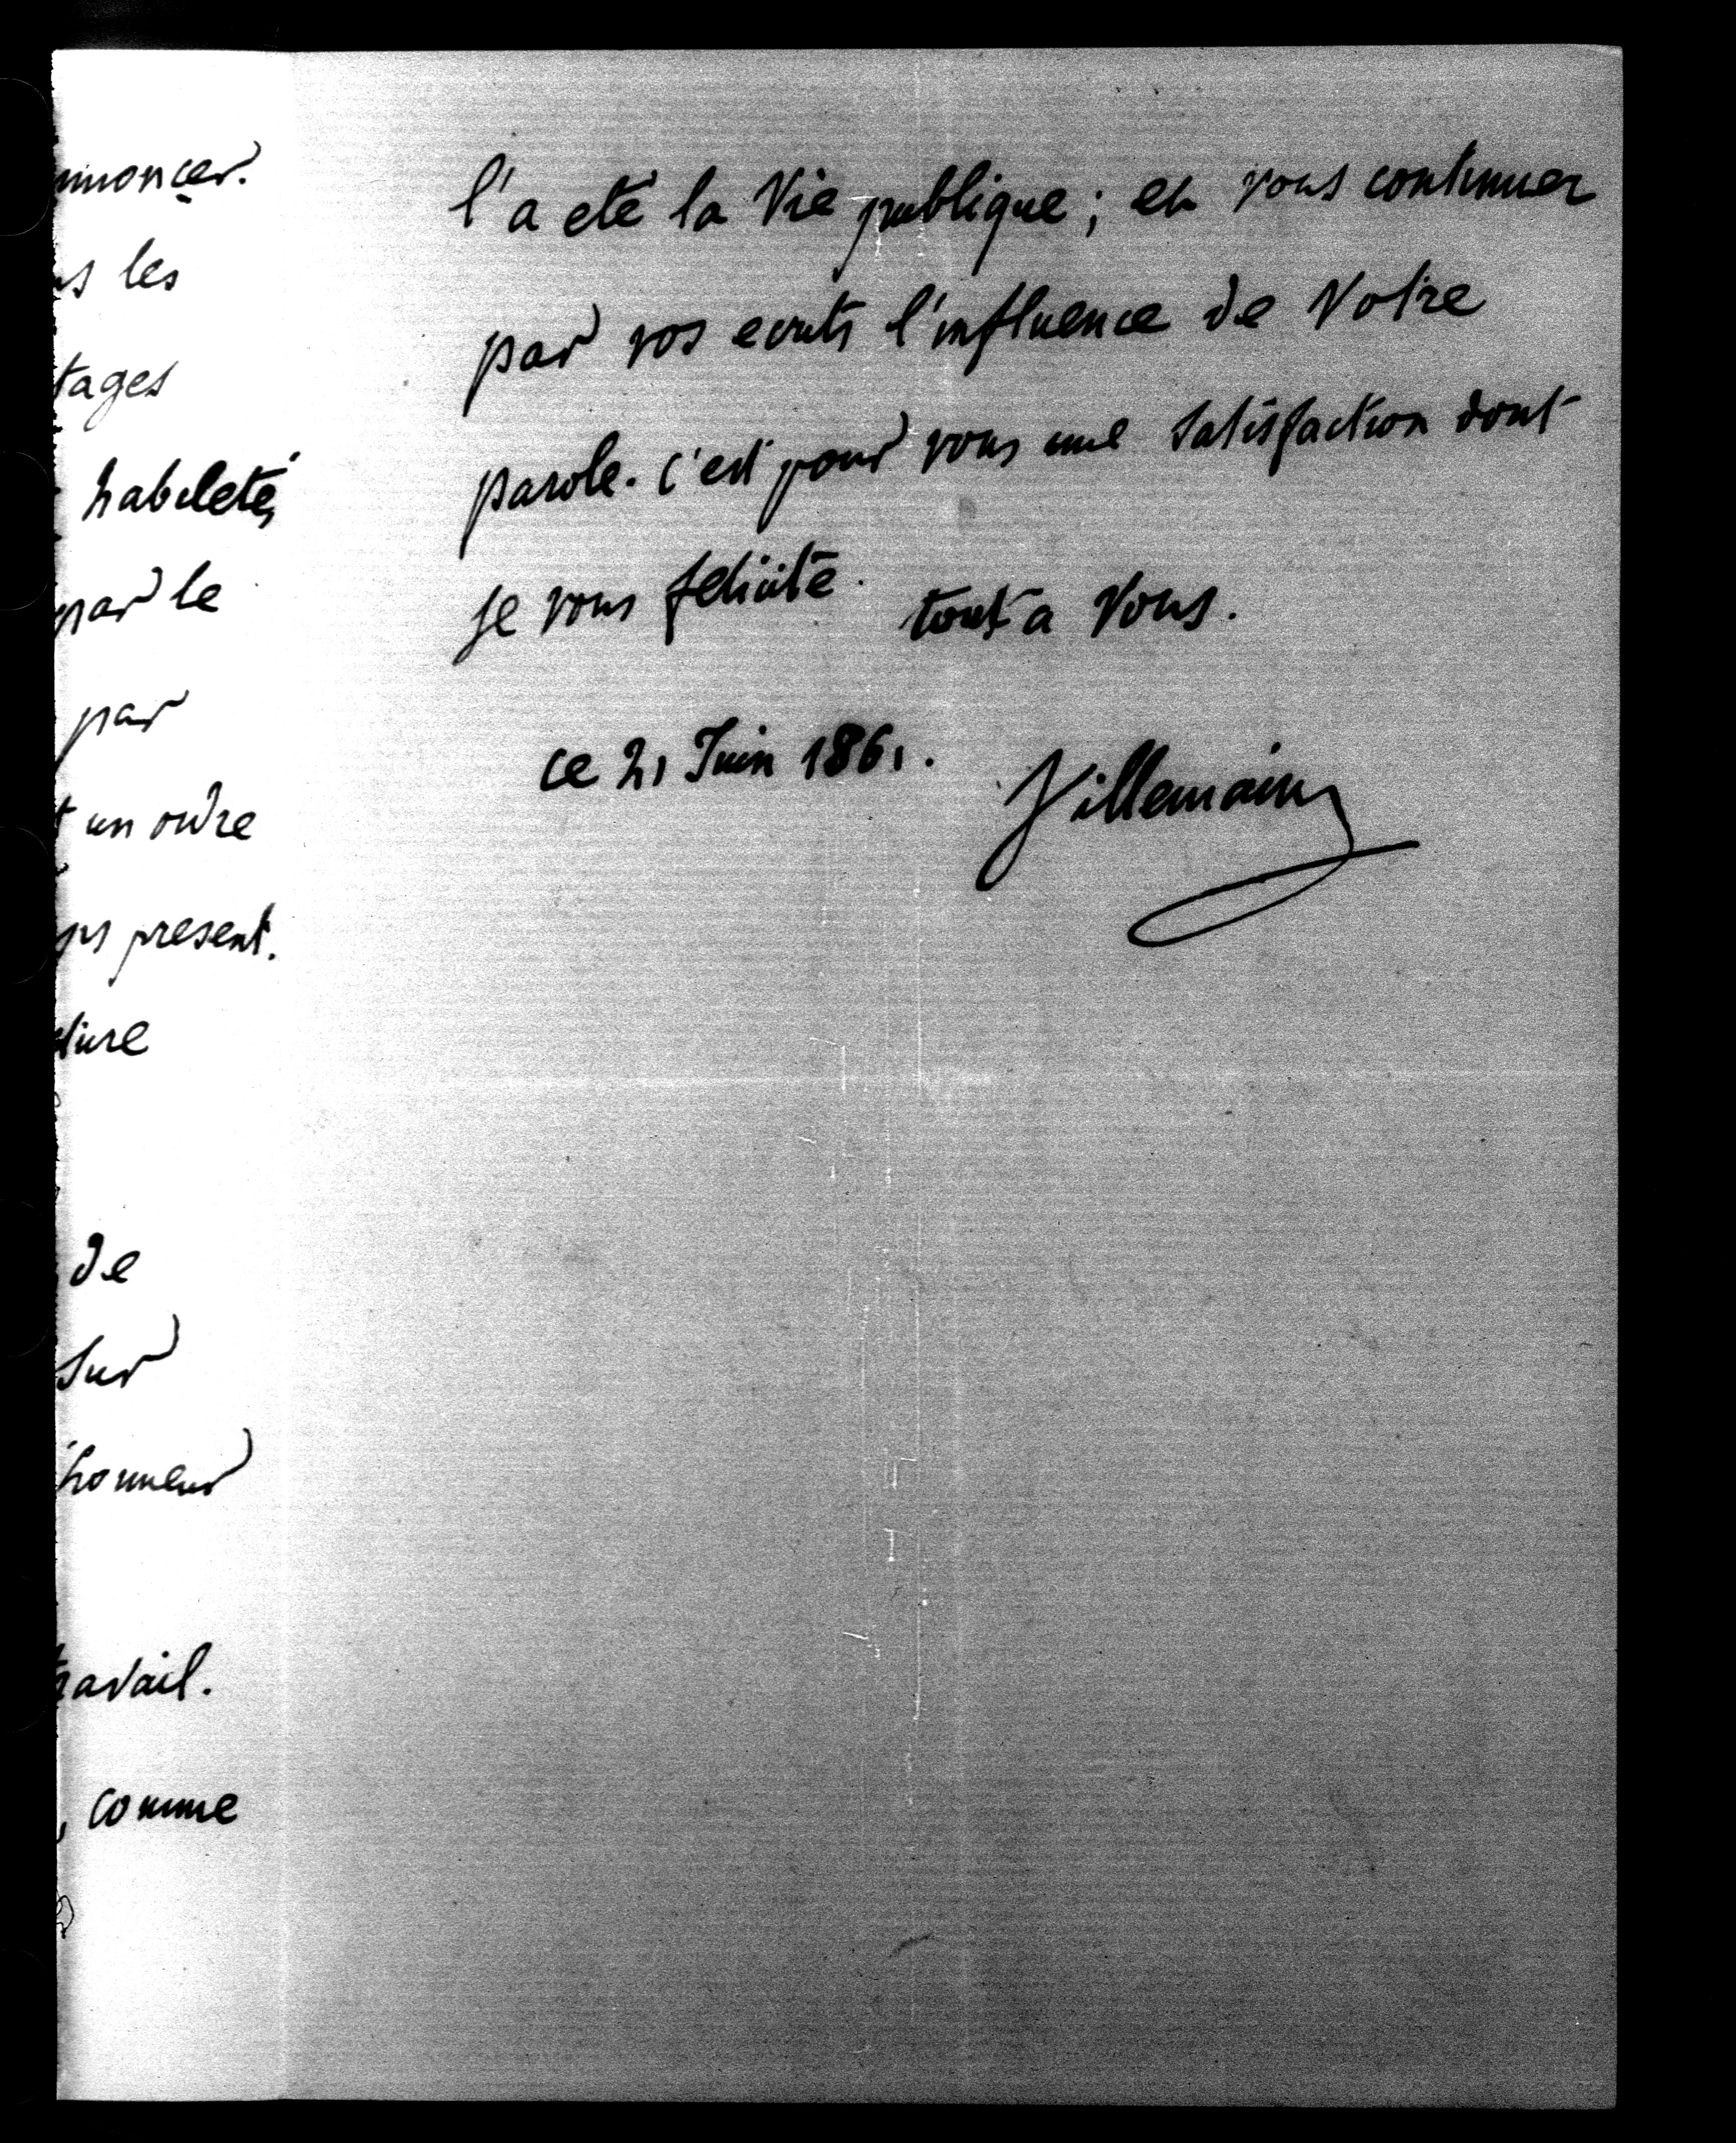 nnoncer.
les
tages
habileté,
par le
par
un ordre
present.
de
sur
honneur
travail.
, comme
l'a eté la Vie publique ; et vous continuez
par vos ecrits l'influence de Votre
parole. c'est pour vous une satisfaction dont
je vous felicite. tout a Vous.
ce 21 Juin 1861.
Villemain